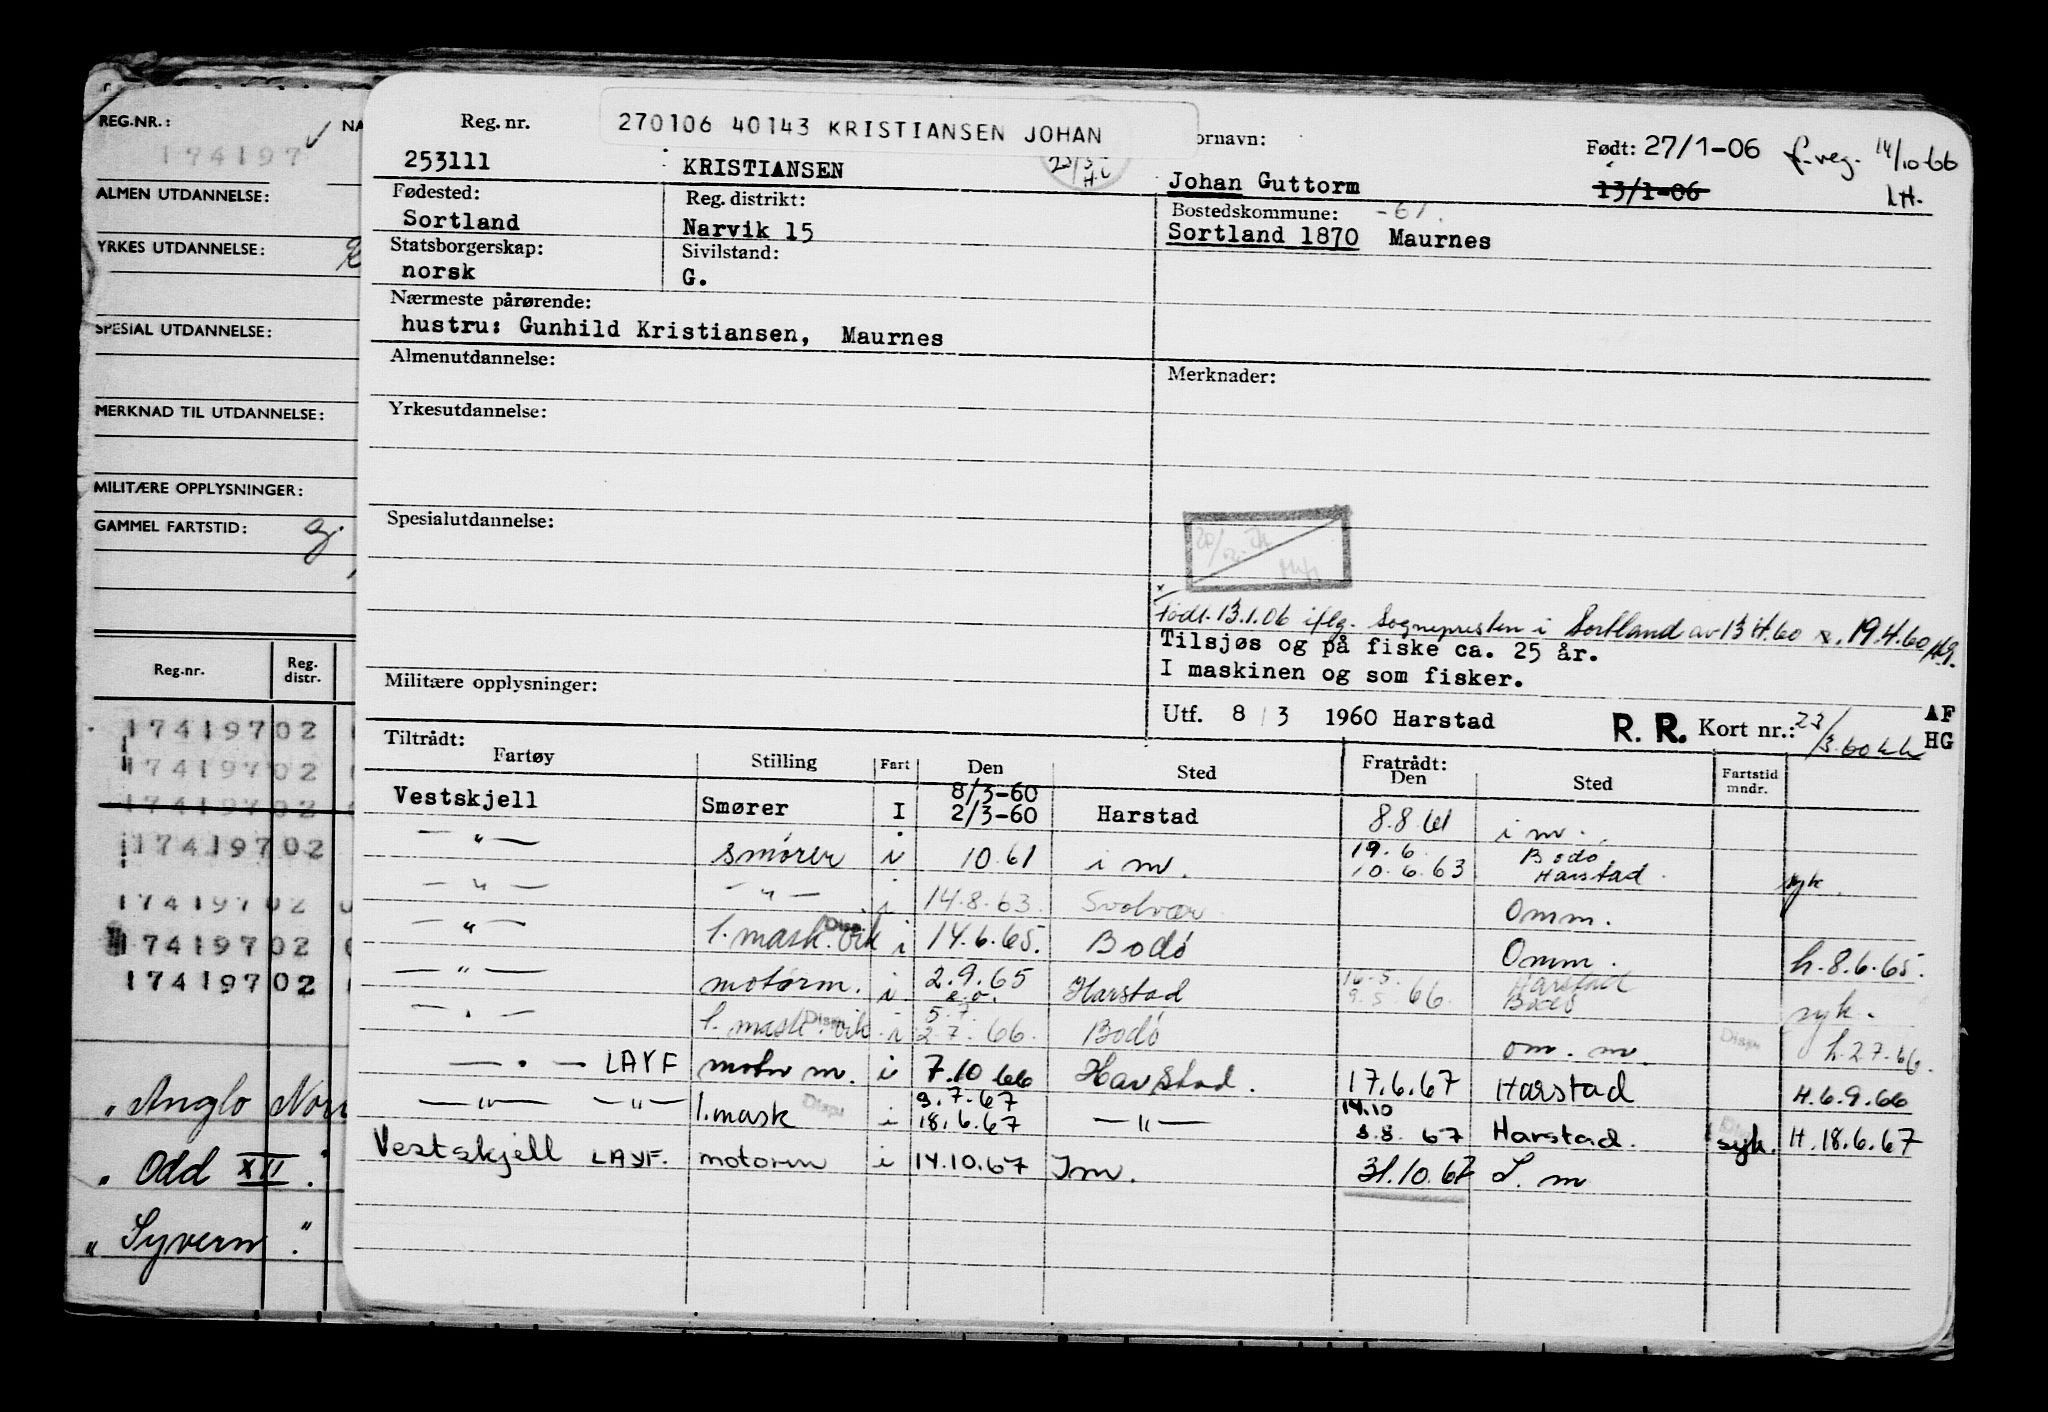 REG.NR.: NA
174197
ALMEN UTDANNELSE:
YRKES UTDANNELSE:
SPESIAL UTDANNELSE:
MERKNAD TIL UTDANNELSE:
MILITÆRE OPPLYSNINGER:
GAMMEL FARTSTID:
Reg.nr. Reg. distr.
17419702
17419702
17419702
17419702
17419702
17419702
17419702
" Anglo Nor
" Odd XII "
" Syvern "
270106 40143 KRISTIANSEN JOHAN
Reg. nr. ornavn: Født: 27/1-06 f.reg. 14/10-66
253111 KRISTIANSEN Johan Guttorm 13/1-06 LH.
Fødested: Reg. distrikt: Bostedskommune: -61.
Sortland Narvik 15 Sortland 1870 Maurnes
Statsborgerskap: Sivilstand:
norsk G.
Nærmeste pårørende:
hustru: Gunhild Kristiansen, Maurnes
Almenutdannelse: Merknader:
Yrkesutdannelse:
Spesialutdannelse:
Født 13.1.06 iflg. Sognepresten i Sortland av 13.4.60 19.4.60
Tilsjøs og på fiske ca. 25 år.
I maskinen og som fisker.
Militære opplysninger:
Utf. 8 / 3 1960 Harstad R. R. Kort nr.: 23/3.60 AF HG
Tiltrådt: Fratrådt:
Fartøy Stilling Fart Den Sted Den Sted Fartstid mndr.
8/3-60
Vestskjell Smører I 2/3-60 Harstad 8.8.61 i m.
— " — smører i 10.61 i m. 19.6 10.6.63 Bodø Harstad syk.
— " — — " — i 14.8.63. Svolvær Omm.
— " — 1. mask. Disp. vik i 14.6.65. Bodø Omm. h.8.6.65.
— " — motorm. i 2.9.65 e.o. Harstad 16.5. 9.5.66 Harstad Bodø syk.
— " — 1. mask. Disp. vik i 5.7. 2.7.66. Bodø om. m. Disp. h.2.7.66.
— " — LAYF motor m. i 7.10.66 Harstad. 17.6.67 Harstad H.6.9.66
— " — — " — 1.mask Disp. i 3.7.67 18.6.67 — " — 14.10 8.8.67 Harstad. syk. H.18.6.67
Vestskjell LAYF. motorm i 14.10.67 Im. 31.10.67 I. m